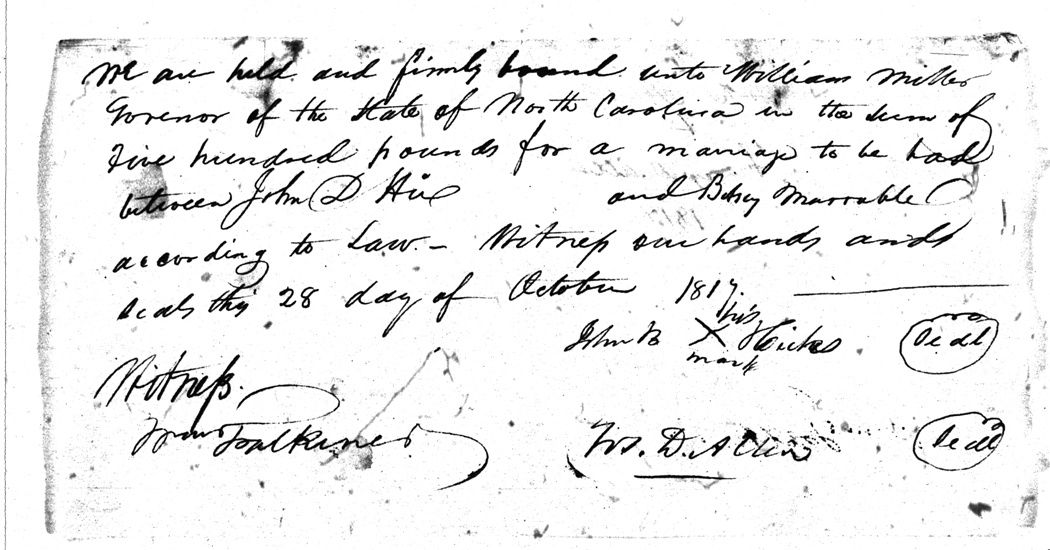 We are held and firmly bound unto William Miller
Govenor of the State of North Carolina in the sum of
Five hundred pounds for a marriage to be had
between John D Hix and Betsy Marrable
according to Law. – Witness our hands and
seals this 28 day of October 1817.
his
John B X Hicks Seal
mark
Witness.
Faulkiner
Jos. D. Allen Seal